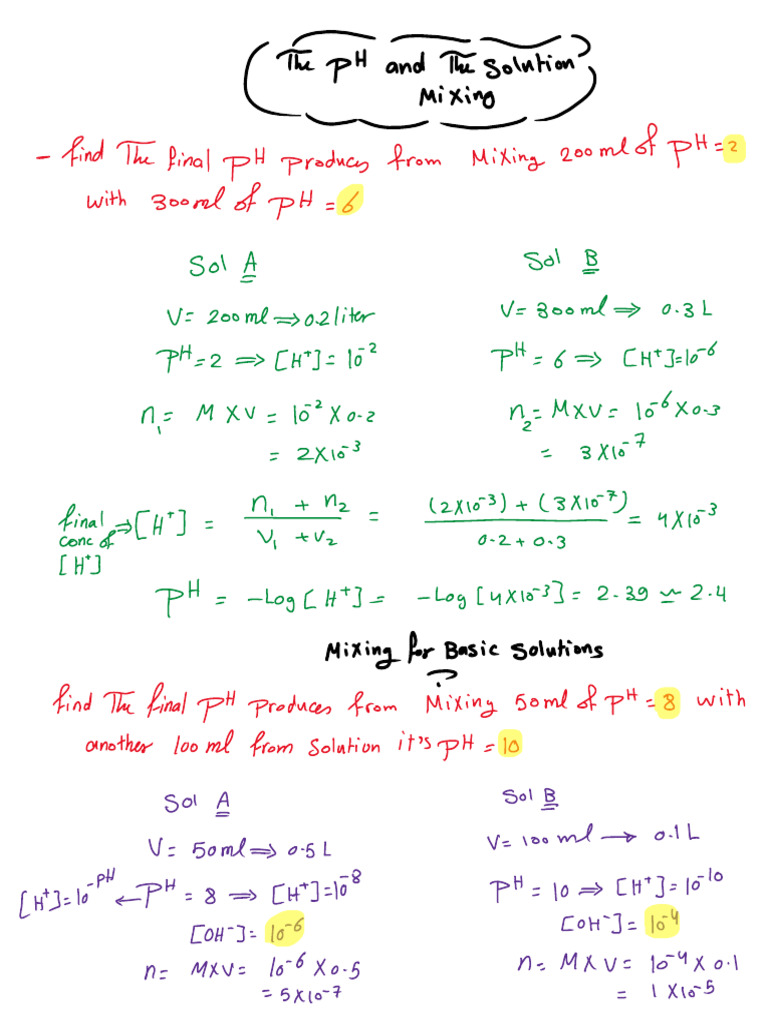 The PH and The Solution
Mixing
- find The final PH Produces from Mixing 200ml of PH=2
with 300ml of PH=6
Sol A
V= 200ml ⇒ 0.2 liter
PH=2 ⇒ [H⁺]=10⁻²
n₁= M X V = 10⁻² X 0.2
= 2X10⁻³
Sol B
V= 300ml ⇒ 0.3 L
PH = 6 ⇒ [H⁺]=10⁻⁶
n₂= MXV = 10⁻⁶ X 0.3
= 3X10⁻⁷
final conc of [H⁺] ⇒ [H⁺] = (n₁ + n₂) / (V₁ + V₂) = ((2X10⁻³) + (3X10⁻⁷)) / (0.2 + 0.3) = 4X10⁻³
PH = -Log [H⁺] = -Log [4X10⁻³] = 2.39 ≃ 2.4
Mixing for Basic Solutions
?
find The final PH Produces from Mixing 50ml of PH=8 with
another 100 ml from Solution it's PH=10
Sol A
V= 50ml ⇒ 0.5 L
[H⁺]=10⁻ᴾᴴ ← PH = 8 ⇒ [H⁺]=10⁻⁸
[OH⁻]= 10⁻⁶
n= MXV= 10⁻⁶ X 0.5
= 5X10⁻⁷
Sol B
V= 100ml → 0.1 L
PH = 10 ⇒ [H⁺]=10⁻¹⁰
[OH⁻]= 10⁻⁴
n= M X V= 10⁻⁴ X 0.1
= 1 X10⁻⁵